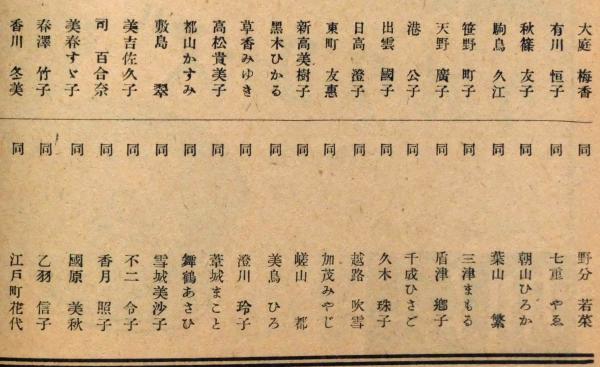 大庭 梅香 同 野分 若菜
有川 恒子 同 七重 やゑ
秋篠 友子 同 朝山ひろか
駒鳥 久江 同 葉山 繁
笹野 町子 同 三津まもる
天野 廣子 同 盾津 郷子
港 公子 同 千成ひさご
出雲 國子 同 久木 珠子
日高 澄子 同 越路 吹雪
東町 友惠 同 加茂みやじ
新高美樹子 同 嵯山 都
黑木ひかる 同 美鳥 ひろ
草香みゆき 同 澄川 玲子
高松貴美子 同 葦城まこと
都山かすみ 同 舞鶴あさひ
敷島 翠 同 雪城美沙子
美吉佐久子 同 不二 令子
司 百合奈 同 香月 照子
美春すゞ子 同 國原 美秋
春澤 竹子 同 乙羽 信子
香川 冬美 同 江戸町花代